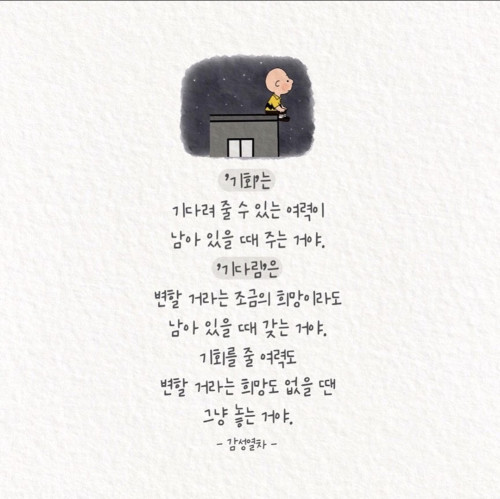 '기회'는
기다려 줄 수 있는 여력이
남아 있을 때 주는 거야.
'기다림'은
변할 거라는 조금의 희망이라도
남아 있을 때 갖는 거야.
기회를 줄 여력도
변할 거라는 희망도 없을 땐
그냥 놓는 거야.
- 감성열차 -